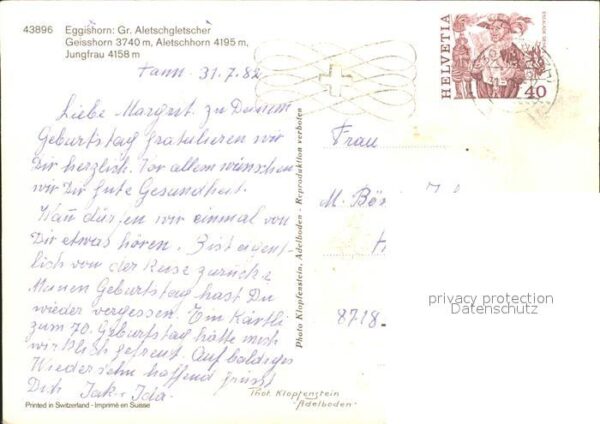 43896 Eggishorn: Gr. Aletschgletscher
Geisshorn 3740 m, Aletschhorn 4195 m,
Jungfrau 4158 m
Tann 31.7.82
Liebe Margrit. zu Deinem
Geburtstag gratulieren wir
Dir herzlich. Vor allem wünschen
wir Dir gute Gesundheit.
Wann dürfen wir einmal von
Dir etwas hören. Bist eigent-
lich von der Reise zurück?
Meinen Geburtstag hast Du
wieder vergessen. Ein Kärtli
zum 70. Geburtstag hätte mich
wirklich gefreut. Auf baldiges
Wiedersehn hoffend grüsst
Dich Jak. Ida.
Printed in Switzerland - Imprimé en Suisse
Photo Klopfenstein, Adelboden - Reproduktion verboten
HELVETIA
40
Frau
M. Bös
8718
privacy protection
Datenschutz
Phot. Klopfenstein
"Adelboden"